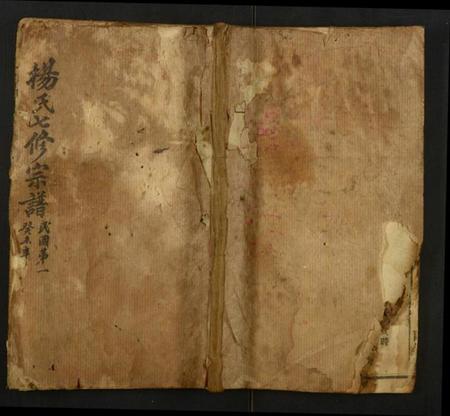 楊氏七修宗譜
民國第一
癸未年